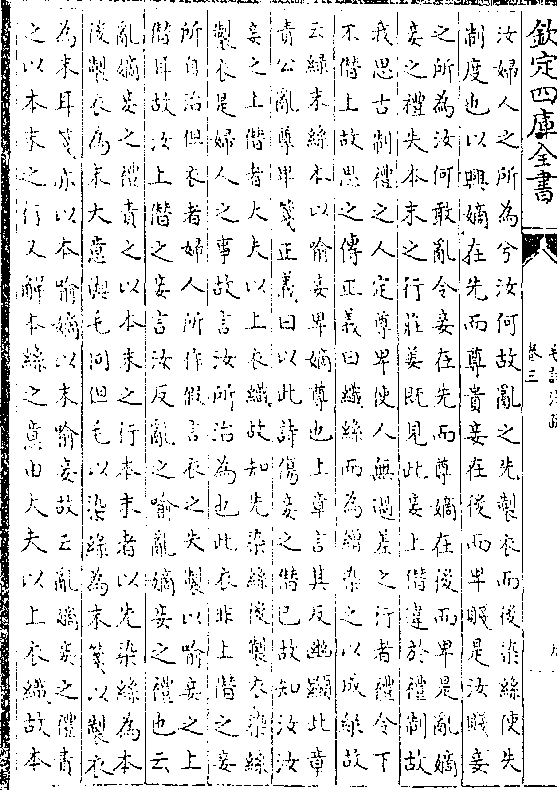 欽定四庫全書
毛詩注疏
卷三
汝婦人之所為兮汝何故亂之先製衣而後染絲使失
制度也以興嫡在先而尊貴妾在後而卑賤是汝賤妾
之所為汝何敢亂令妾在先而尊嫡在後而卑是亂嫡
妾之禮失本末之行莊姜既見此妾上僭違於禮制故
我思古制禮之人定尊卑使人無過差之行者禮令下
不僭上故思之傳正義曰織絲而為繒染之以成綠故
云綠末絲本以喻妾卑嫡尊也上章言其反幽顯此章
責公亂尊卑箋正義曰以此詩傷妾之僭已故知汝汝
妾之上僭者大夫以上衣織故知先染絲後製衣染絲
製衣是婦人之事故言汝所治為也此衣非上僭之妾
所自治但衣者婦人所作假言衣之失製以喻妾之上
僭耳故汝上僭之妾言汝反亂之喻亂嫡妾之禮也云
亂嫡妾之禮責之以本末之行本末者以先染絲為本
後製衣為末大意與毛同但毛以染綠為末箋以製衣
為末耳箋亦以本喻嫡以末喻妾故云亂嫡妾之禮責
之以本末之行又解本絲之意由大夫以上衣織故本